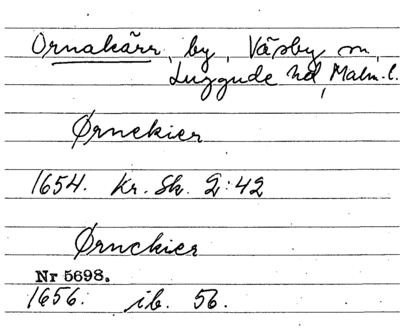 Ornakärr, by, Väsby sn,
Luggude hd, Malm. l.
Ørnekier
1654. Kr. Sk. 2:42
Ørnekier
Nr 5698.
1656. ib. 56.